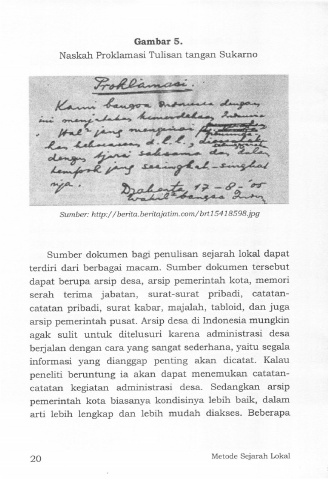 Gambar 5.
Naskah Proklamasi Tulisan tangan Sukarno
Proklamasi.
Kami bangsa Indonesia dengan
ini menjatakan kemerdekaan
Hal² jang mengenai
d.l.l.,
dengan tjara saksama dan
tempoh jang sesingkat-singkat
nja.
Djakarta, 17-8-'05
Wakil² bangsa
Sumber: http://berita.beritajatim.com/brt15418598.jpg
Sumber dokumen bagi penulisan sejarah lokal dapat
terdiri dari berbagai macam. Sumber dokumen tersebut
dapat berupa arsip desa, arsip pemerintah kota, memori
serah terima jabatan, surat-surat pribadi, catatan-
catatan pribadi, surat kabar, majalah, tabloid, dan juga
arsip pemerintah pusat. Arsip desa di Indonesia mungkin
agak sulit untuk ditelusuri karena administrasi desa
berjalan dengan cara yang sangat sederhana, yaitu segala
informasi yang dianggap penting akan dicatat. Kalau
peneliti beruntung ia akan dapat menemukan catatan-
catatan kegiatan administrasi desa. Sedangkan arsip
pemerintah kota biasanya kondisinya lebih baik, dalam
arti lebih lengkap dan lebih mudah diakses. Beberapa
20
Metode Sejarah Lokal